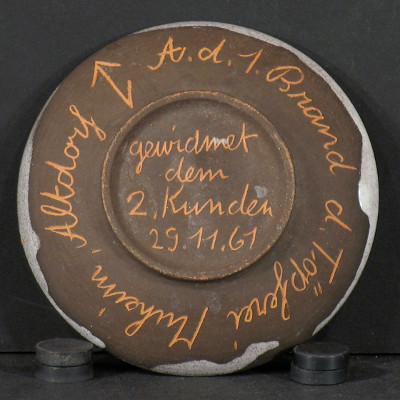 A. d. 1. Brand d. Töpferei Muheim, Altdorf
gewidmet
dem
2. Kunden
29.11.61